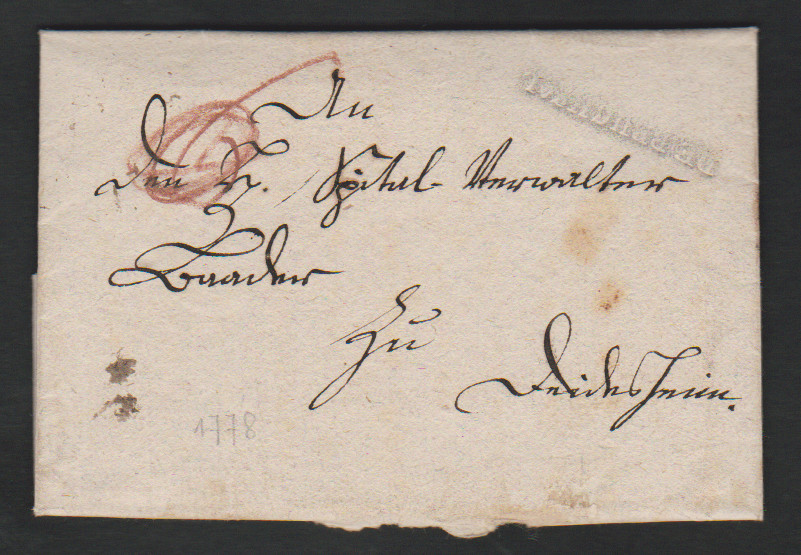 An
Den H. Spital-Verwalter
Baader
Zu
Deidesheim.
1778